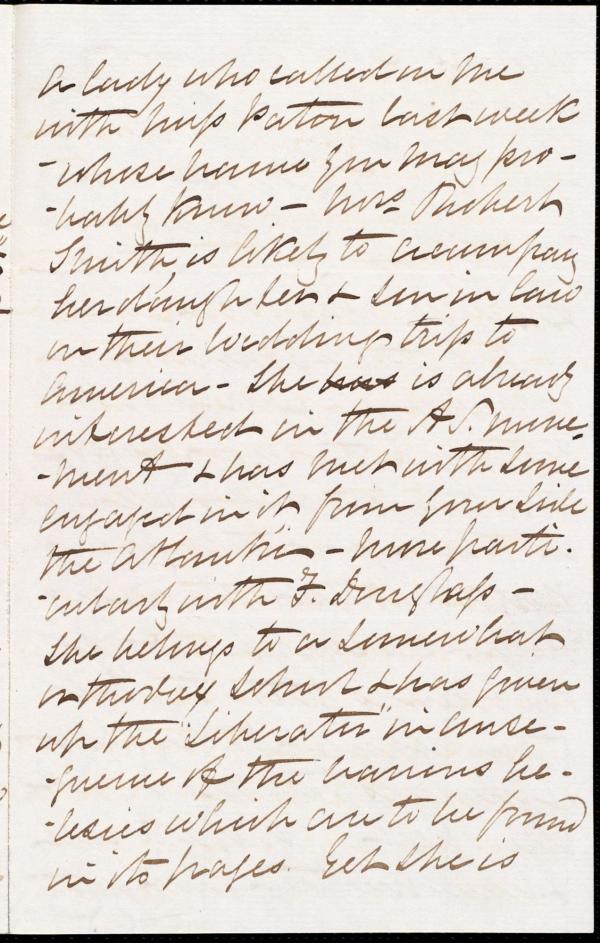 A lady who called on me
with Miss Paton last week
- whose name you may pro-
-bably know - Mrs. Robert
Smith, is likely to accompany
her daughter & son in law
on their wedding trip to
America - She has is already
interested in the A.S. move-
-ment & has met with some
engaged in it from your side
the Atlantic - more parti-
-cularly with F. Douglass -
She belongs to a somewhat
orthodox school & has given
up the "Liberator" in conse-
-quence of the various he-
-resies which are to be found
in its pages. Yet she is